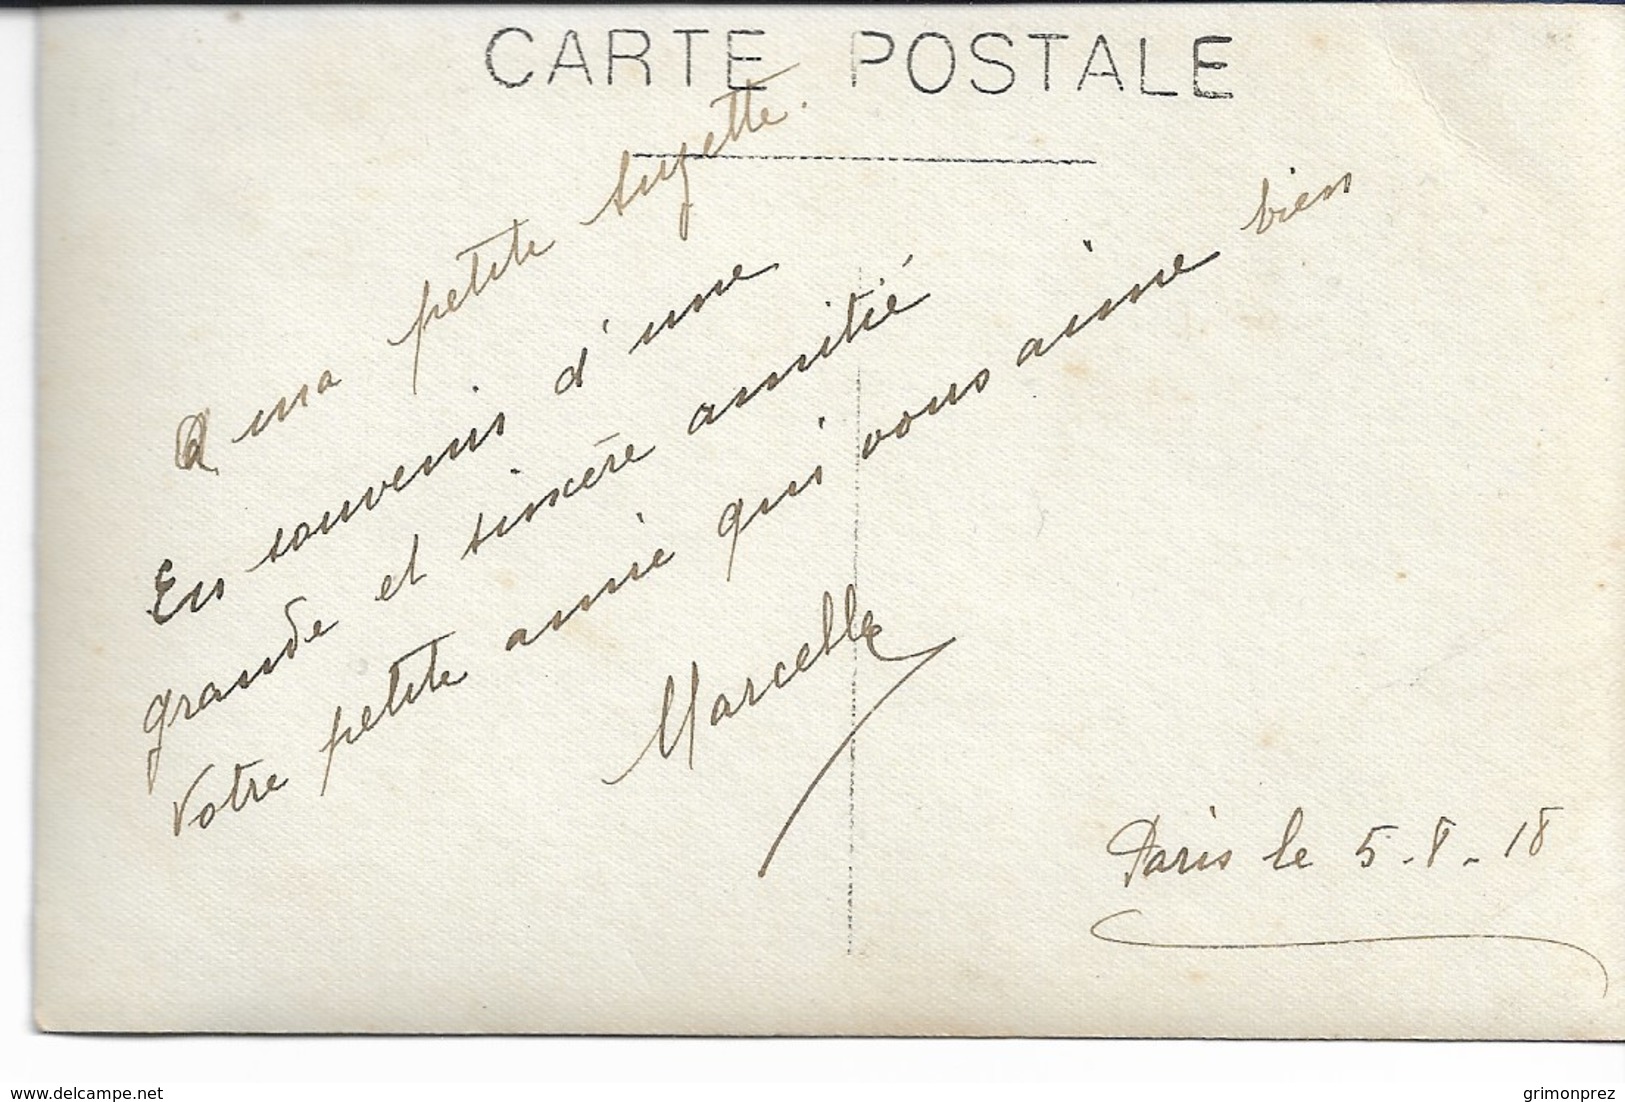 CARTE POSTALE
A ma petite Suzette.
En souvenir d'une
grande et sincère amitié
Votre petite amie qui vous aime bien
Marcelle
Paris le 5-8-18
© delcampe.net
grimonprez